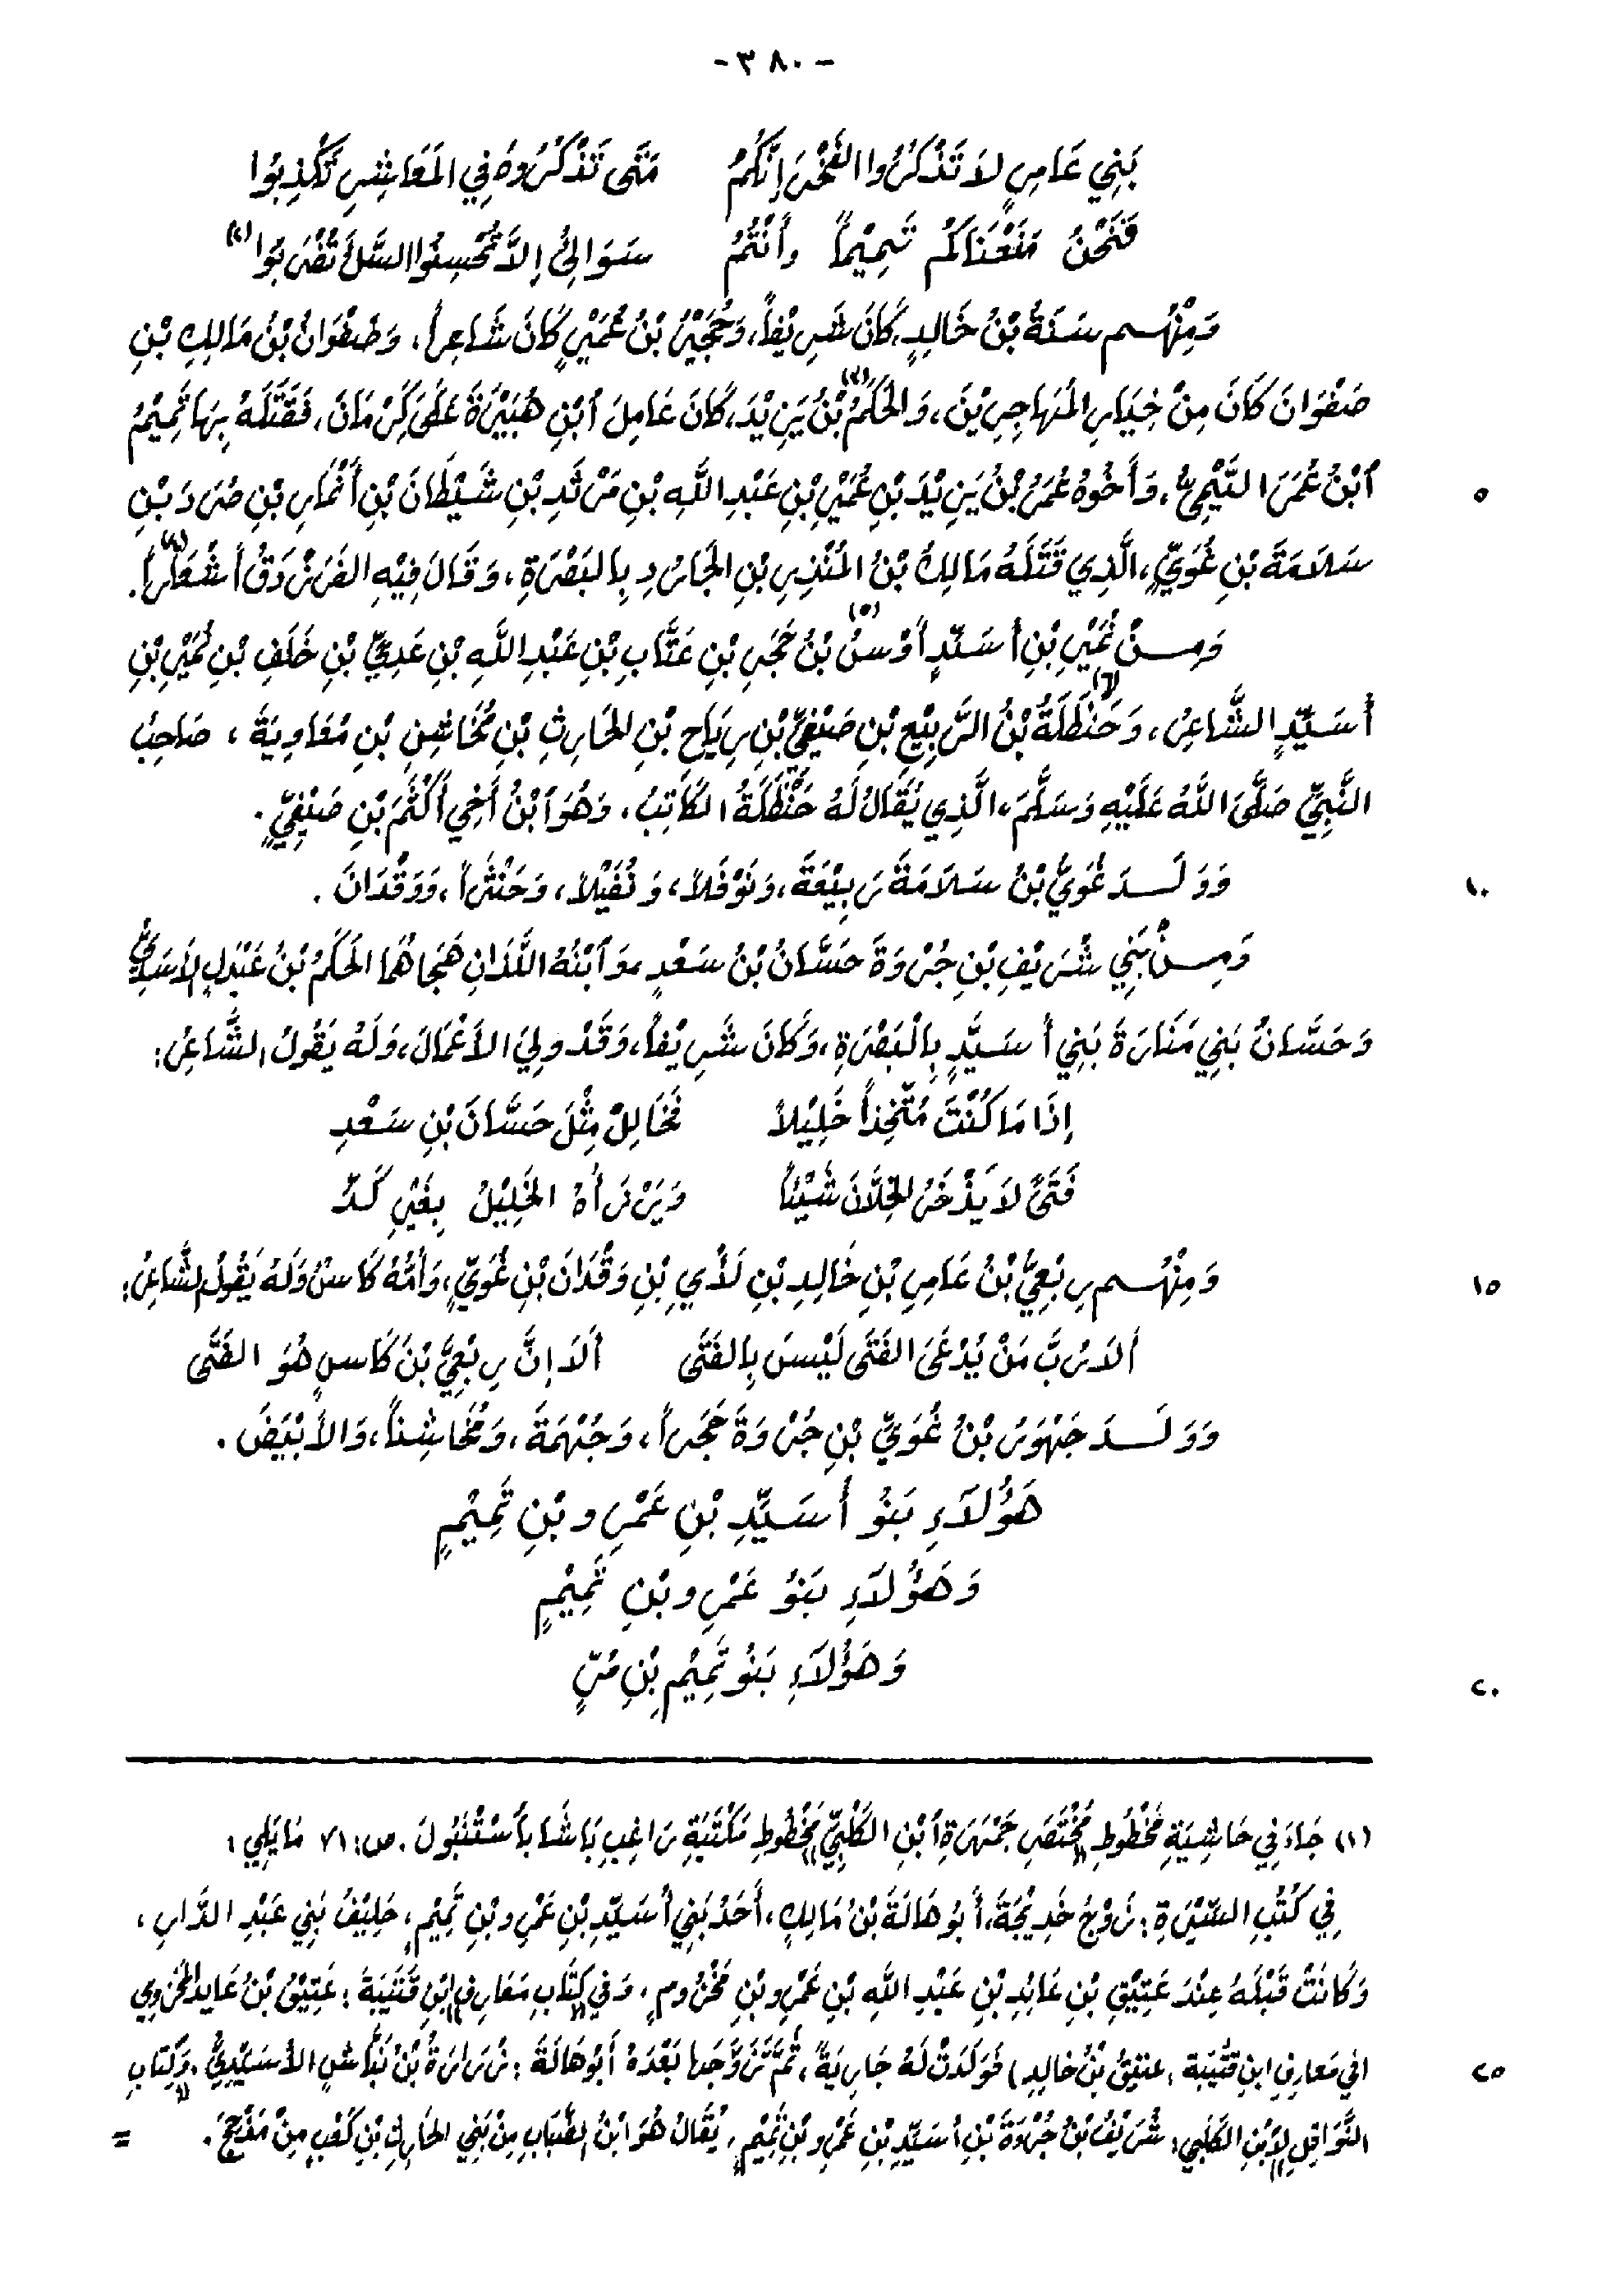 - ٣٨٠ -
بَنِي عَامِرٍ لاَ تَذْكُرُوا الفَخْرَ إِنَّكُمْ مَتَى تَذْكُرُوهُ فِي المَعَاشِرِ تُكْذَبُوا
فَنَحْنُ مَنَعْنَاكُمْ تَمِيْماً وأَنْتُمُ سَوَالِئُ إِلاَّ تُحْسِنُوا السَّلْءَ تُضْرَبُوا (٢)
وَمِنْهُم سَنَةُ بْنُ خَالِدٍ، كَانَ شَرِيْفاً، وَحُجَيْرُ بْنُ عُمَيْرٍ كَانَ شَاعِراً، وَصَفْوَانُ بْنُ مَالِكِ بْنِ
صَفْوَانَ كَانَ مِنْ خِيَارِ المُهَاجِرِيْنَ، وَالحَكَمُ (٣) بْنُ يَزِيْدَ، كَانَ عَامِلَ ابْنِ هُبَيْرَةَ عَلَى كِرْمَانَ، فَقَتَلَهُ بِهَا تَمِيْمُ
ابْنُ عُمَرَ التَّيْمِيُّ، وَأَخُوهُ عُمَرُ بْنُ يَزِيْدَ بْنِ عُمَيْرِ بْنِ عَبْدِ اللَّهِ بْنِ مَرْثَدِ بْنِ شَيْطَانَ بْنِ أَنْمَارِ بْنِ صُرَدَ بْنِ ٥
سَلَامَةَ بْنِ غُوَيٍّ، الَّذِي قَتَلَهُ مَالِكُ بْنُ المُنْذِرِ بْنِ الجَارُدِ بِالبَصْرَةِ، وَقَالَ فِيْهِ الفَرَزْدَقُ أَشْعَاراً (٤).
وَمِنْ نُمَيْرِ بْنِ أُسَيِّدٍ أَوْسُ (٥) بْنُ حَجَرِ بْنِ عَتَّابِ بْنِ عَبْدِ اللَّهِ بْنِ عَدِيِّ بْنِ خَلَفِ بْنِ نُمَيْرِ بْنِ
أُسَيِّدٍ الشَّاعِرُ، وَحَنْظَلَةُ (٦) بْنُ الرَّبِيْعِ بْنِ صَيْفِيِّ بْنِ رِيَاحِ بْنِ الحَارِثِ بْنِ مُخَاشِنِ بْنِ مُعَاوِيَةَ، صَاحِبُ
النَّبِيِّ صَلَّى اللَّهُ عَلَيْهِ وَسَلَّمَ، الَّذِي يُقَالُ لَهُ حَنْظَلَةُ الكَاتِبُ، وَهُوَ ابْنُ أَخِي أَكْثَمَ بْنِ صَيْفِيٍّ.
وَوَلَدَ غُوَيُّ بْنُ سَلَامَةَ رَبِيْعَةَ، وَنَوْفَلاً، وَنُفَيْلاً، وَحَنْثَراً، وَوَقْدَانَ. ١٠
وَمِنْ بَنِي شُرَيْفِ بْنِ جُرْوَةَ حَسَّانُ بْنُ سَعْدٍ وَابْنُهُ اللَّذَانِ هَجَاهُمَا الحَكَمُ بْنُ عَبْدَلٍ الأَسَدِيُّ
وَحَسَّانُ بَنِي مَنَارَةَ بَنِي أُسَيِّدٍ بِالْبَصْرَةِ، وَكَانَ شَرِيْفاً، وَقَدْ وَلِيَ الأَعْمَالَ، وَلَهُ يَقُولُ الشَّاعِرُ:
إِذَا مَا كُنْتَ مُتَّخِذاً خَلِيْلاً فَخَالِلْ مِثْلَ حَسَّانَ بْنِ سَعْدِ
فَتَىً لاَ يَذْخَرُ الخِلاَّنَ شَيْئاً وَيَرْزَأُهُ الخَلِيْلُ بِغَيْرِ كَدِّ
وَمِنْهُم رِبْعِيُّ بْنُ عَامِرِ بْنِ خَالِدِ بْنِ لأْيِ بْنِ وَقْدَانَ بْنِ غُوَيٍّ، وَأُمُّهُ كَاسُ وَلَهُ يَقُولُ الشَّاعِرُ: ١٥
أَلاَ رُبَّ مَنْ يُدْعَى الفَتَى لَيْسَ بِالفَتَى أَلاَ إِنَّ رِبْعِيَّ بْنَ كَاسٍ هُوَ الفَتَى
وَوَلَدَ جَهْوَرُ بْنُ غُوَيِّ بْنِ جُرْوَةَ حَجَراً، وَجُهْمَةَ، وَمُخَاشِناً، وَالأَبْيَضَ.
هَؤُلاَءِ بَنُو أُسَيِّدِ بْنِ عَمْرِو بْنِ تَمِيْمٍ
وَهَؤُلاَءِ بَنُو عَمْرِو بْنِ تَمِيْمٍ
وَهَؤُلاَءِ بَنُو تَمِيْمِ بْنِ مُرٍّ ٢٠
(١) جَاءَ فِي حَاشِيَةِ مَخْطُوطِ «مُخْتَصَرِ جَمْهَرَةِ ابْنِ الكَلْبِيِّ» مَخْطُوطِ مَكْتَبَةِ رَاغِبِ بَاشَا بِأَسْتُنْبُولَ. ص: ٧١ مَا يَلِي:
فِي كُتُبِ السِّيْرَةِ: زَوْجُ خَدِيْجَةَ، أَبُو هَالَةَ بْنُ مَالِكٍ، أَحَدُ بَنِي أُسَيِّدِ بْنِ عَمْرِو بْنِ تَمِيْمٍ، حَلِيْفُ بَنِي عَبْدِ الدَّارِ،
وَكَانَتْ قَبْلَهُ عِنْدَ عَتِيْقِ بْنِ عَائِذِ بْنِ عَبْدِ اللهِ بْنِ عَمْرِو بْنِ مَخْزُومٍ. وَفِي كِتَابِ «مَعَارِفِ ابْنِ قُتَيْبَةَ»: عَتِيْقُ بْنُ عَايِدٍ المَخْزُومِي
(في مَعَارِفِ ابنِ قُتَيْبَة: عتيقُ بْنُ خالِدٍ) فَوَلَدَتْ لَهُ جَارِيَةً، ثُمَّ تَزَوَّجَهَا بَعْدَهُ أَبُو هَالَةَ: زُرَارَةُ بْنُ نَبَّاشٍ الأُسَيِّدِيُّ، وَكِتَابِ ٢٥
«النَّوَافِلِ لابْنِ الكَلْبِي»: شُرَيْفُ بْنُ جُرْوَةَ بْنِ أُسَيِّدِ بْنِ عَمْرِو بْنِ تَمِيْمٍ، يُقَالُ هُوَ ابْنُ الضَّبَابِ مِنْ بَنِي الحَارِثِ بْنِ كَعْبٍ مِنْ مَذْحِجَ. =